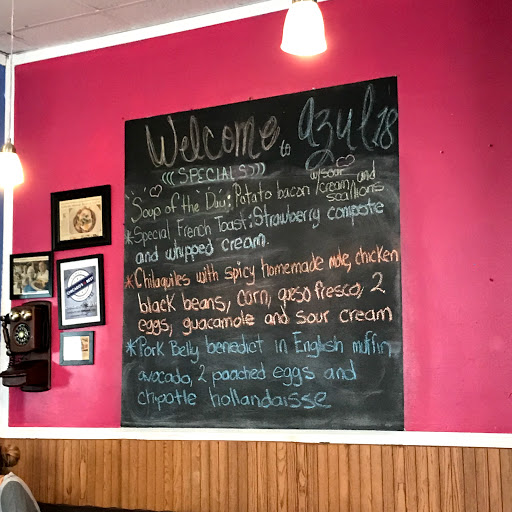 Welcome to Azul 18
(((SPECIALS)))
Soup of the Day: Potato bacon w/sour cream and scallions
*Special French Toast: Strawberry compote
and whipped cream.
*Chilaquiles with spicy homemade mole, chicken
black beans, corn, queso fresco, 2
eggs, guacamole and sour cream
*Pork Belly benedict in English muffin
avocado, 2 poached eggs and
chipotle hollandaisse